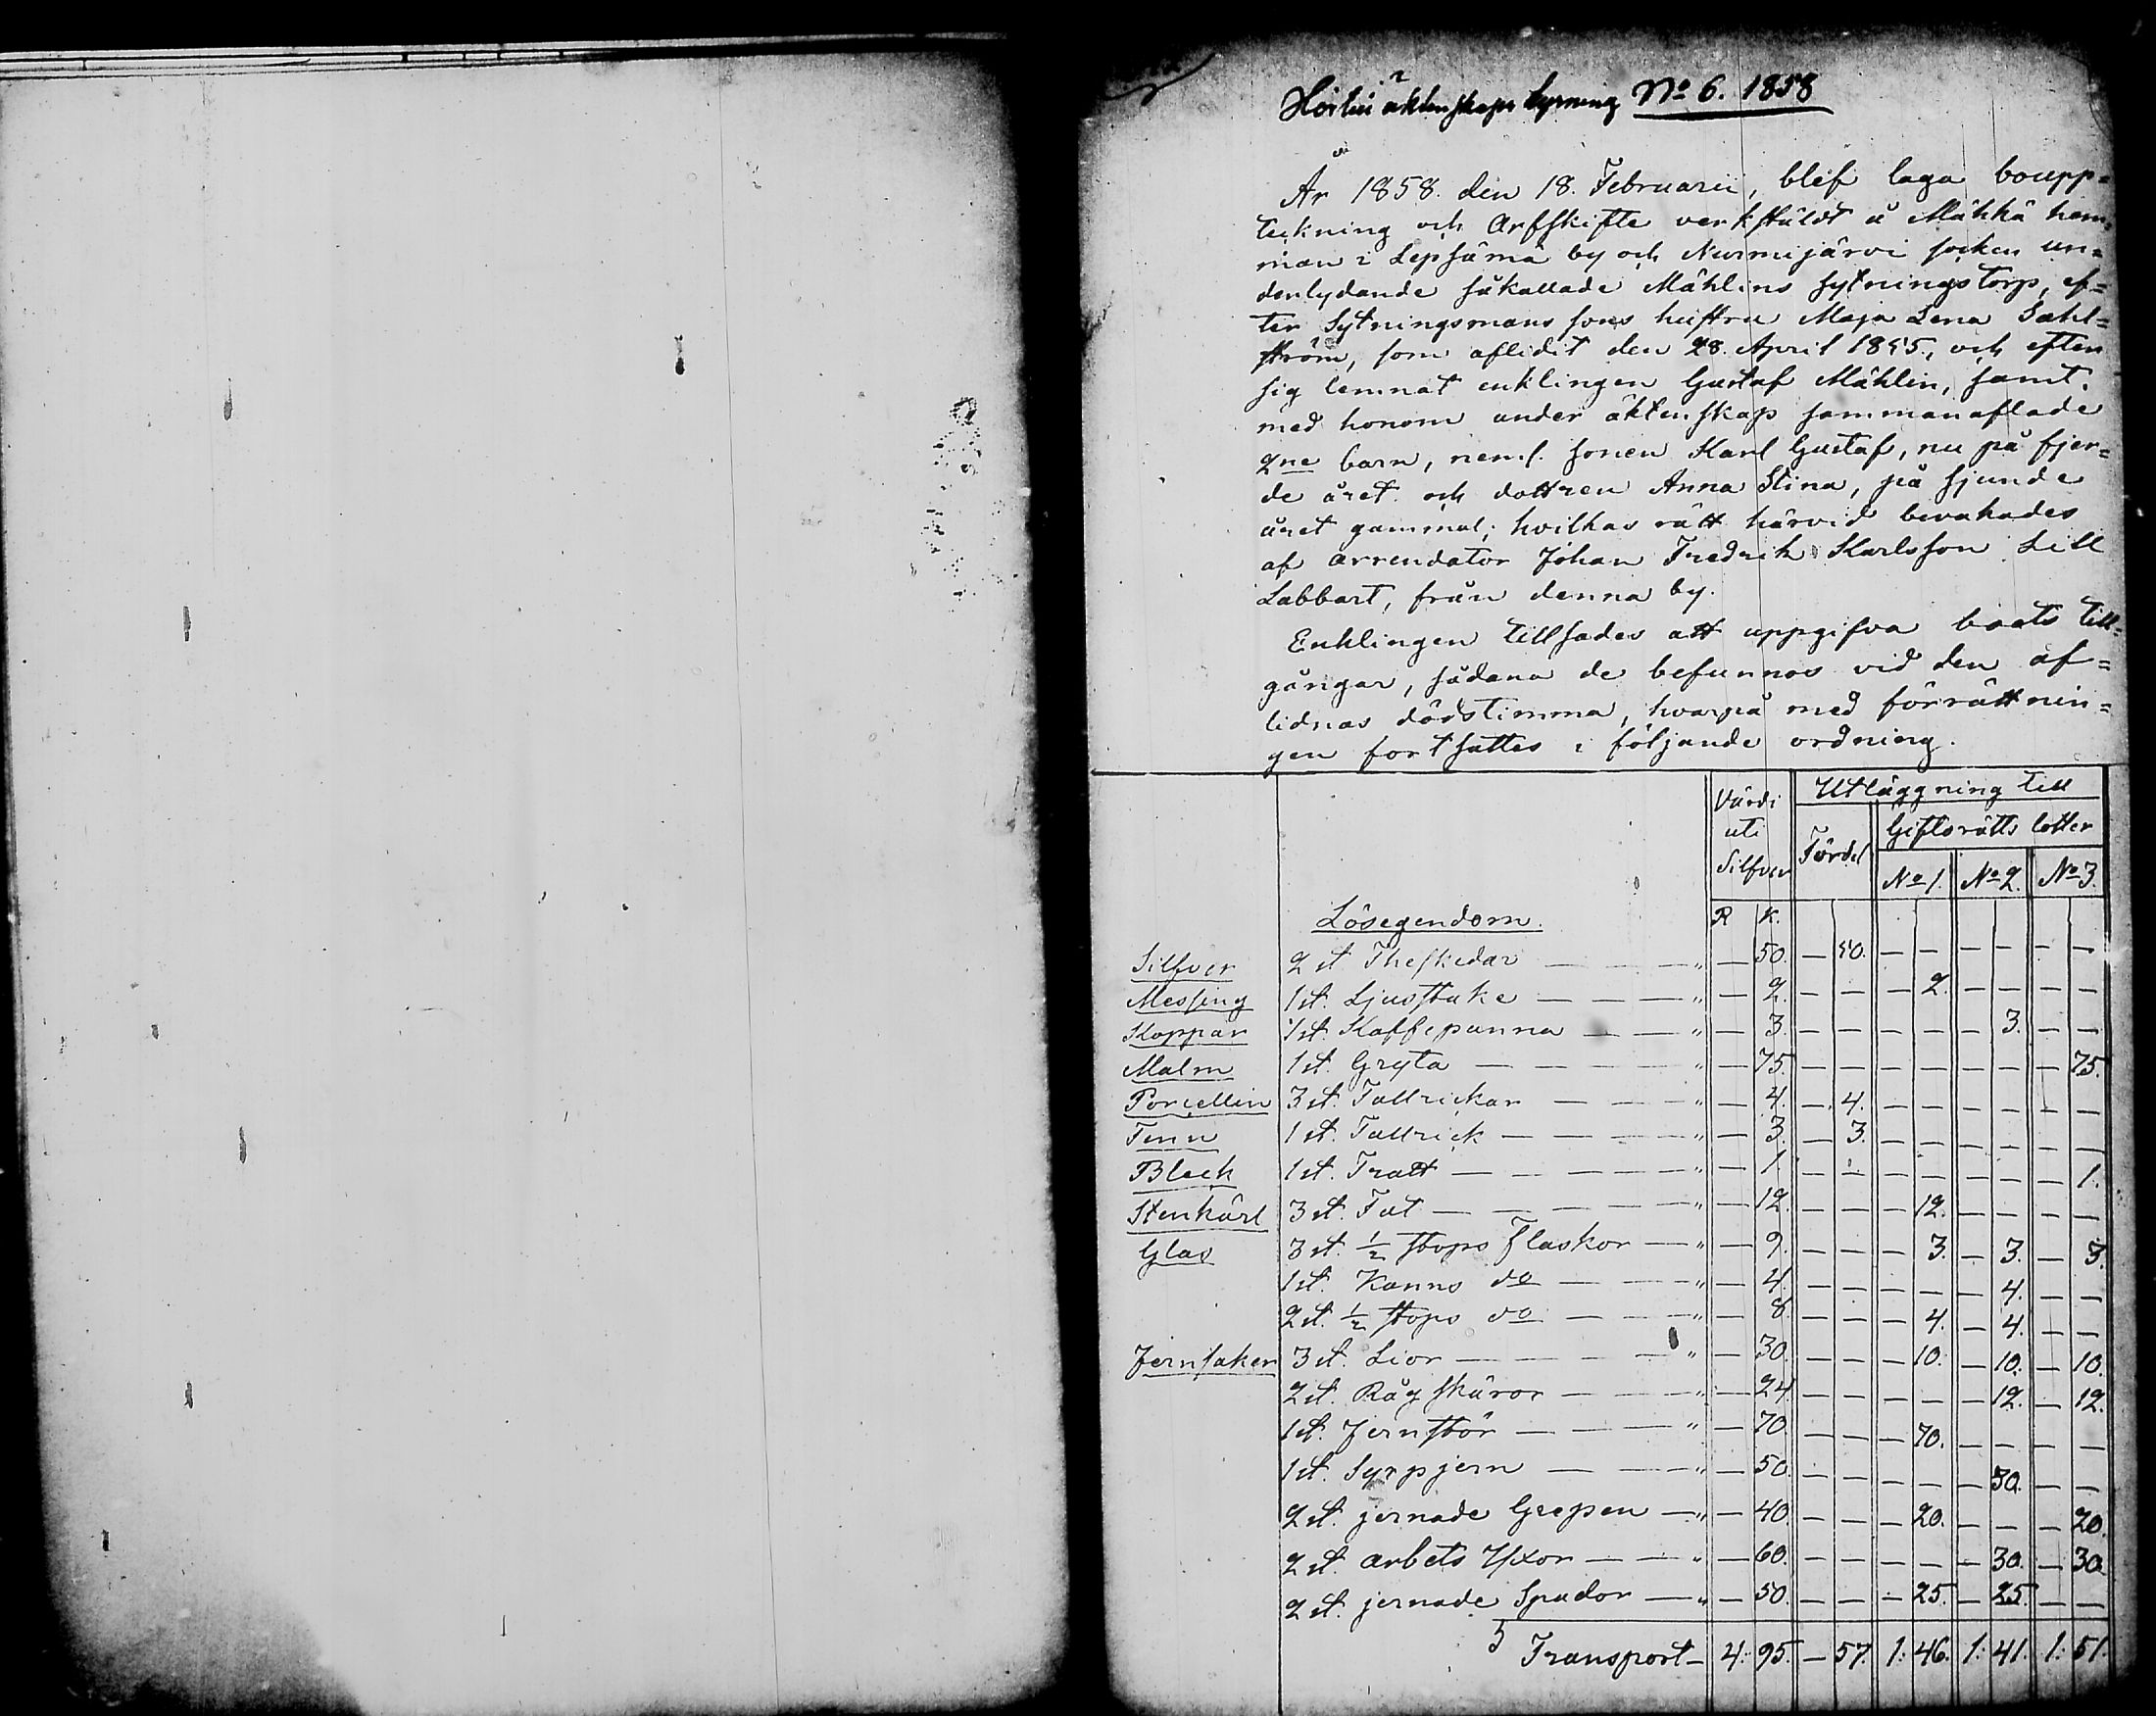 äktenskaps lysning No 6. 1858
År 1858. den 18. Februarii, blef laga boupp=
teckning och Arfskifte verkstäldt å Mähkä hem¬
man i Lepsämä by och Nurmijärvi socken un=
derlydande såkallade Mählins sytningstorp, ef=
ter Sytningsmans sons hustru Maja Lena Dahl=
ström, som aflidit den 28. April 1855, och efter
sig lemnat enklingen Gustaf Mählin, samt
med honom under äktenskap sammanaflade
2ne barn, neml. sonen Karl Gustaf, nu på fjer=
de året och dottren Anna Stina, på sjunde
året gammal; hvilkas rätt härvid bevakades
af arrendator Johan Fredrik Karlsson Lill
Labbart, från denna by.
Enklingen tillsades att uppgifva boets till=
gångar, sådana de befunnos vid den af=
lidnas dödstimma, hvarpå med förrättnin=
gen fortsattes i följande ordning.
Värdi uti Silfver Utläggning till
Fördel Giftorätts lotter
No 1. No 2. No 3.
Lösegendom. R K.
Silfver 2 st Theskedar — — — " — 50. — 50. — — — — — —
Messing 1 st. Ljusstake — — — " — 2. — — — 2. — — — —
Koppar 1 st. Kaffepanna — — " — 3. — — — — — 3. — —
Malm 1 st. Gryta — — — — " — 75. — — — — — — — 75.
Porcellin 3 st. Tallrickar — — — " — 4. — 4. — — — — — —
Tenn 1 st. Tallrick — — — — " — 3. — 3. — — — — — —
Bleck 1 st. Tratt — — — — — " — 1. — — — — — — — 1.
Stenkärl 3 st. Fat — — — — — " — 12. — — — 12. — — — —
Glas 3 st. ½ stops Flaskor — " — 9. — — — 3. — 3. — 3.
1 st. Kanns do — — — " — 4. — — — — — 4. — —
2 st. ½ stops do — — — " — 8. — — — 4. — 4. — —
Jernsaker 3 st. Lior — — — — " — 30. — — — 10. — 10. — 10.
2 st. Rågskäror — — — " — 24. — — — — — 12. — 12.
1 st. Jernstör — — — — " — 70. — — — 70. — — — —
1 st. Syrpjern — — — " — 50. — — — — — 50. — —
2 st. jernade Grepen — " — 40. — — — 20. — — — 20.
2 st. arbets Yxor — — " — 60. — — — — — 30. — 30.
2 st. jernade Spador — " — 50. — — — 25. — 25. — —
Transport — 4: 95. — 57. 1: 46. 1: 41. 1: 51.